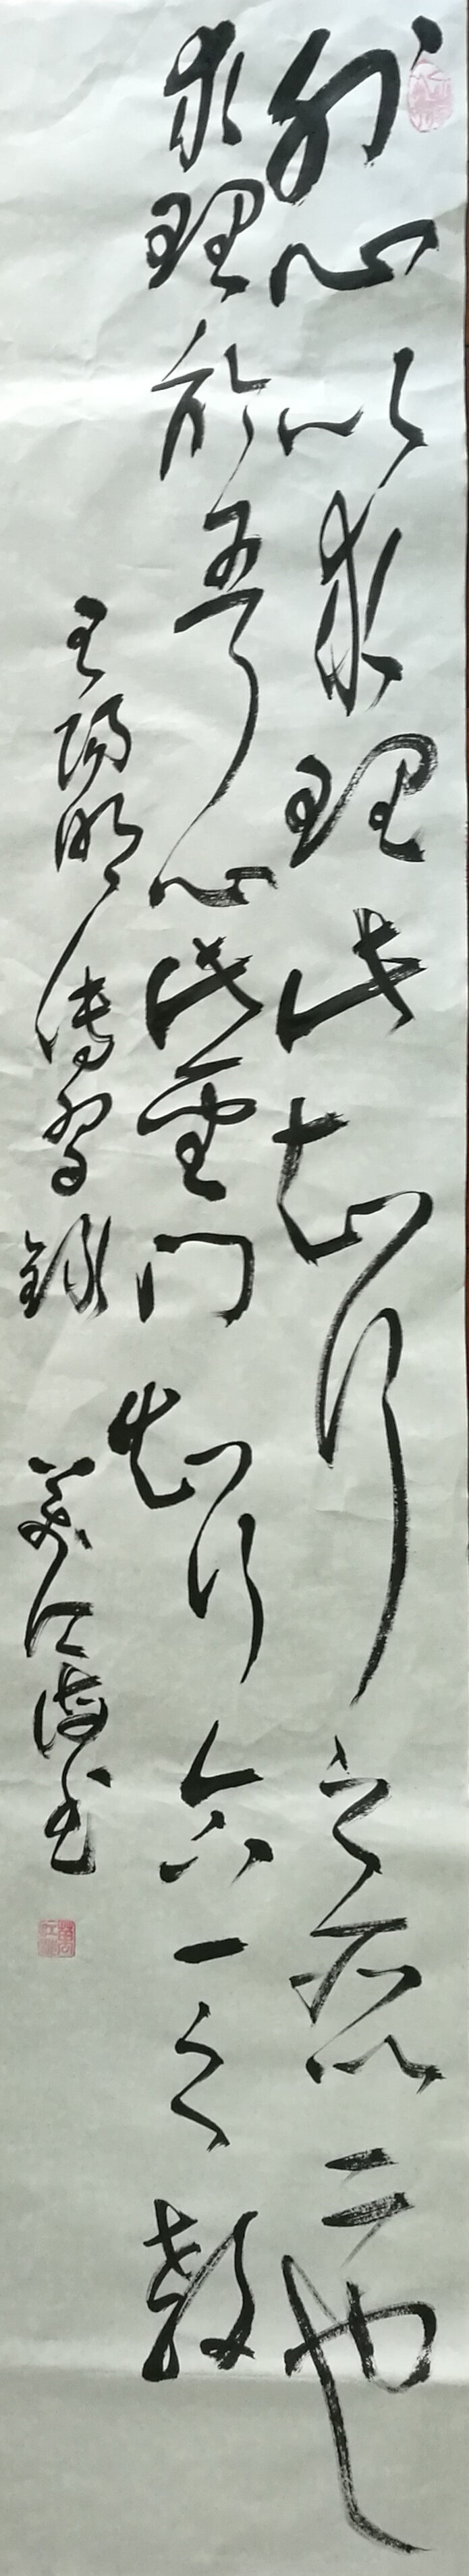 外心以求理此知行之所以二也
求理於吾心此聖門知行合一之教
王陽明傳習錄 萬江海書